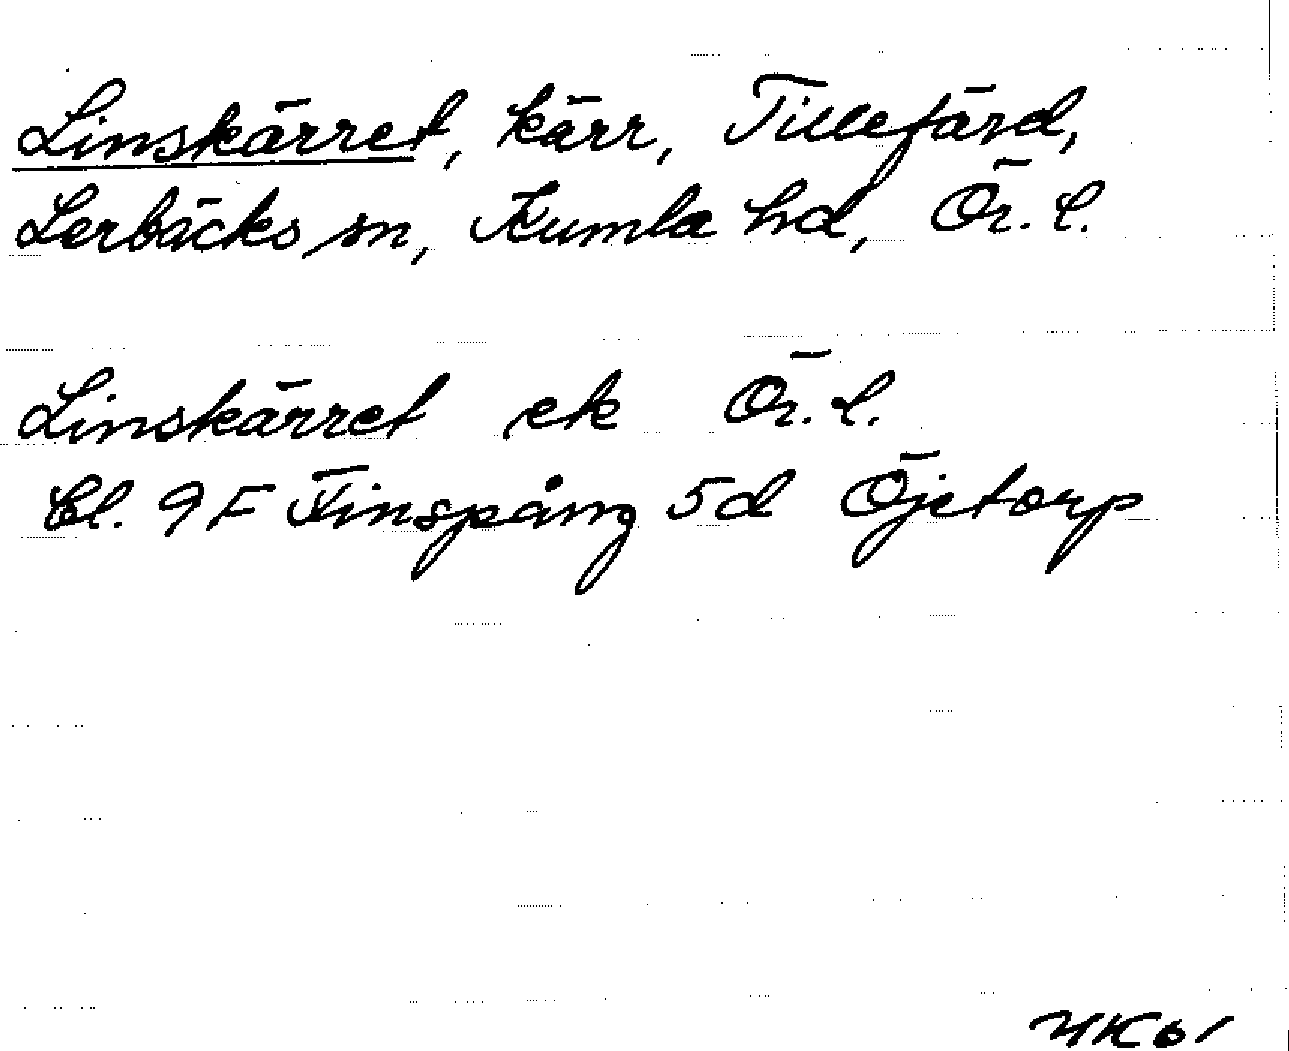 Linskärret, kärr, Tillefärd,
Lerbäcks sn, Kumla hd, Ör. l.
Linskärret ek Ör. l.
Bl. 9F Finspång 5d Öjetorp